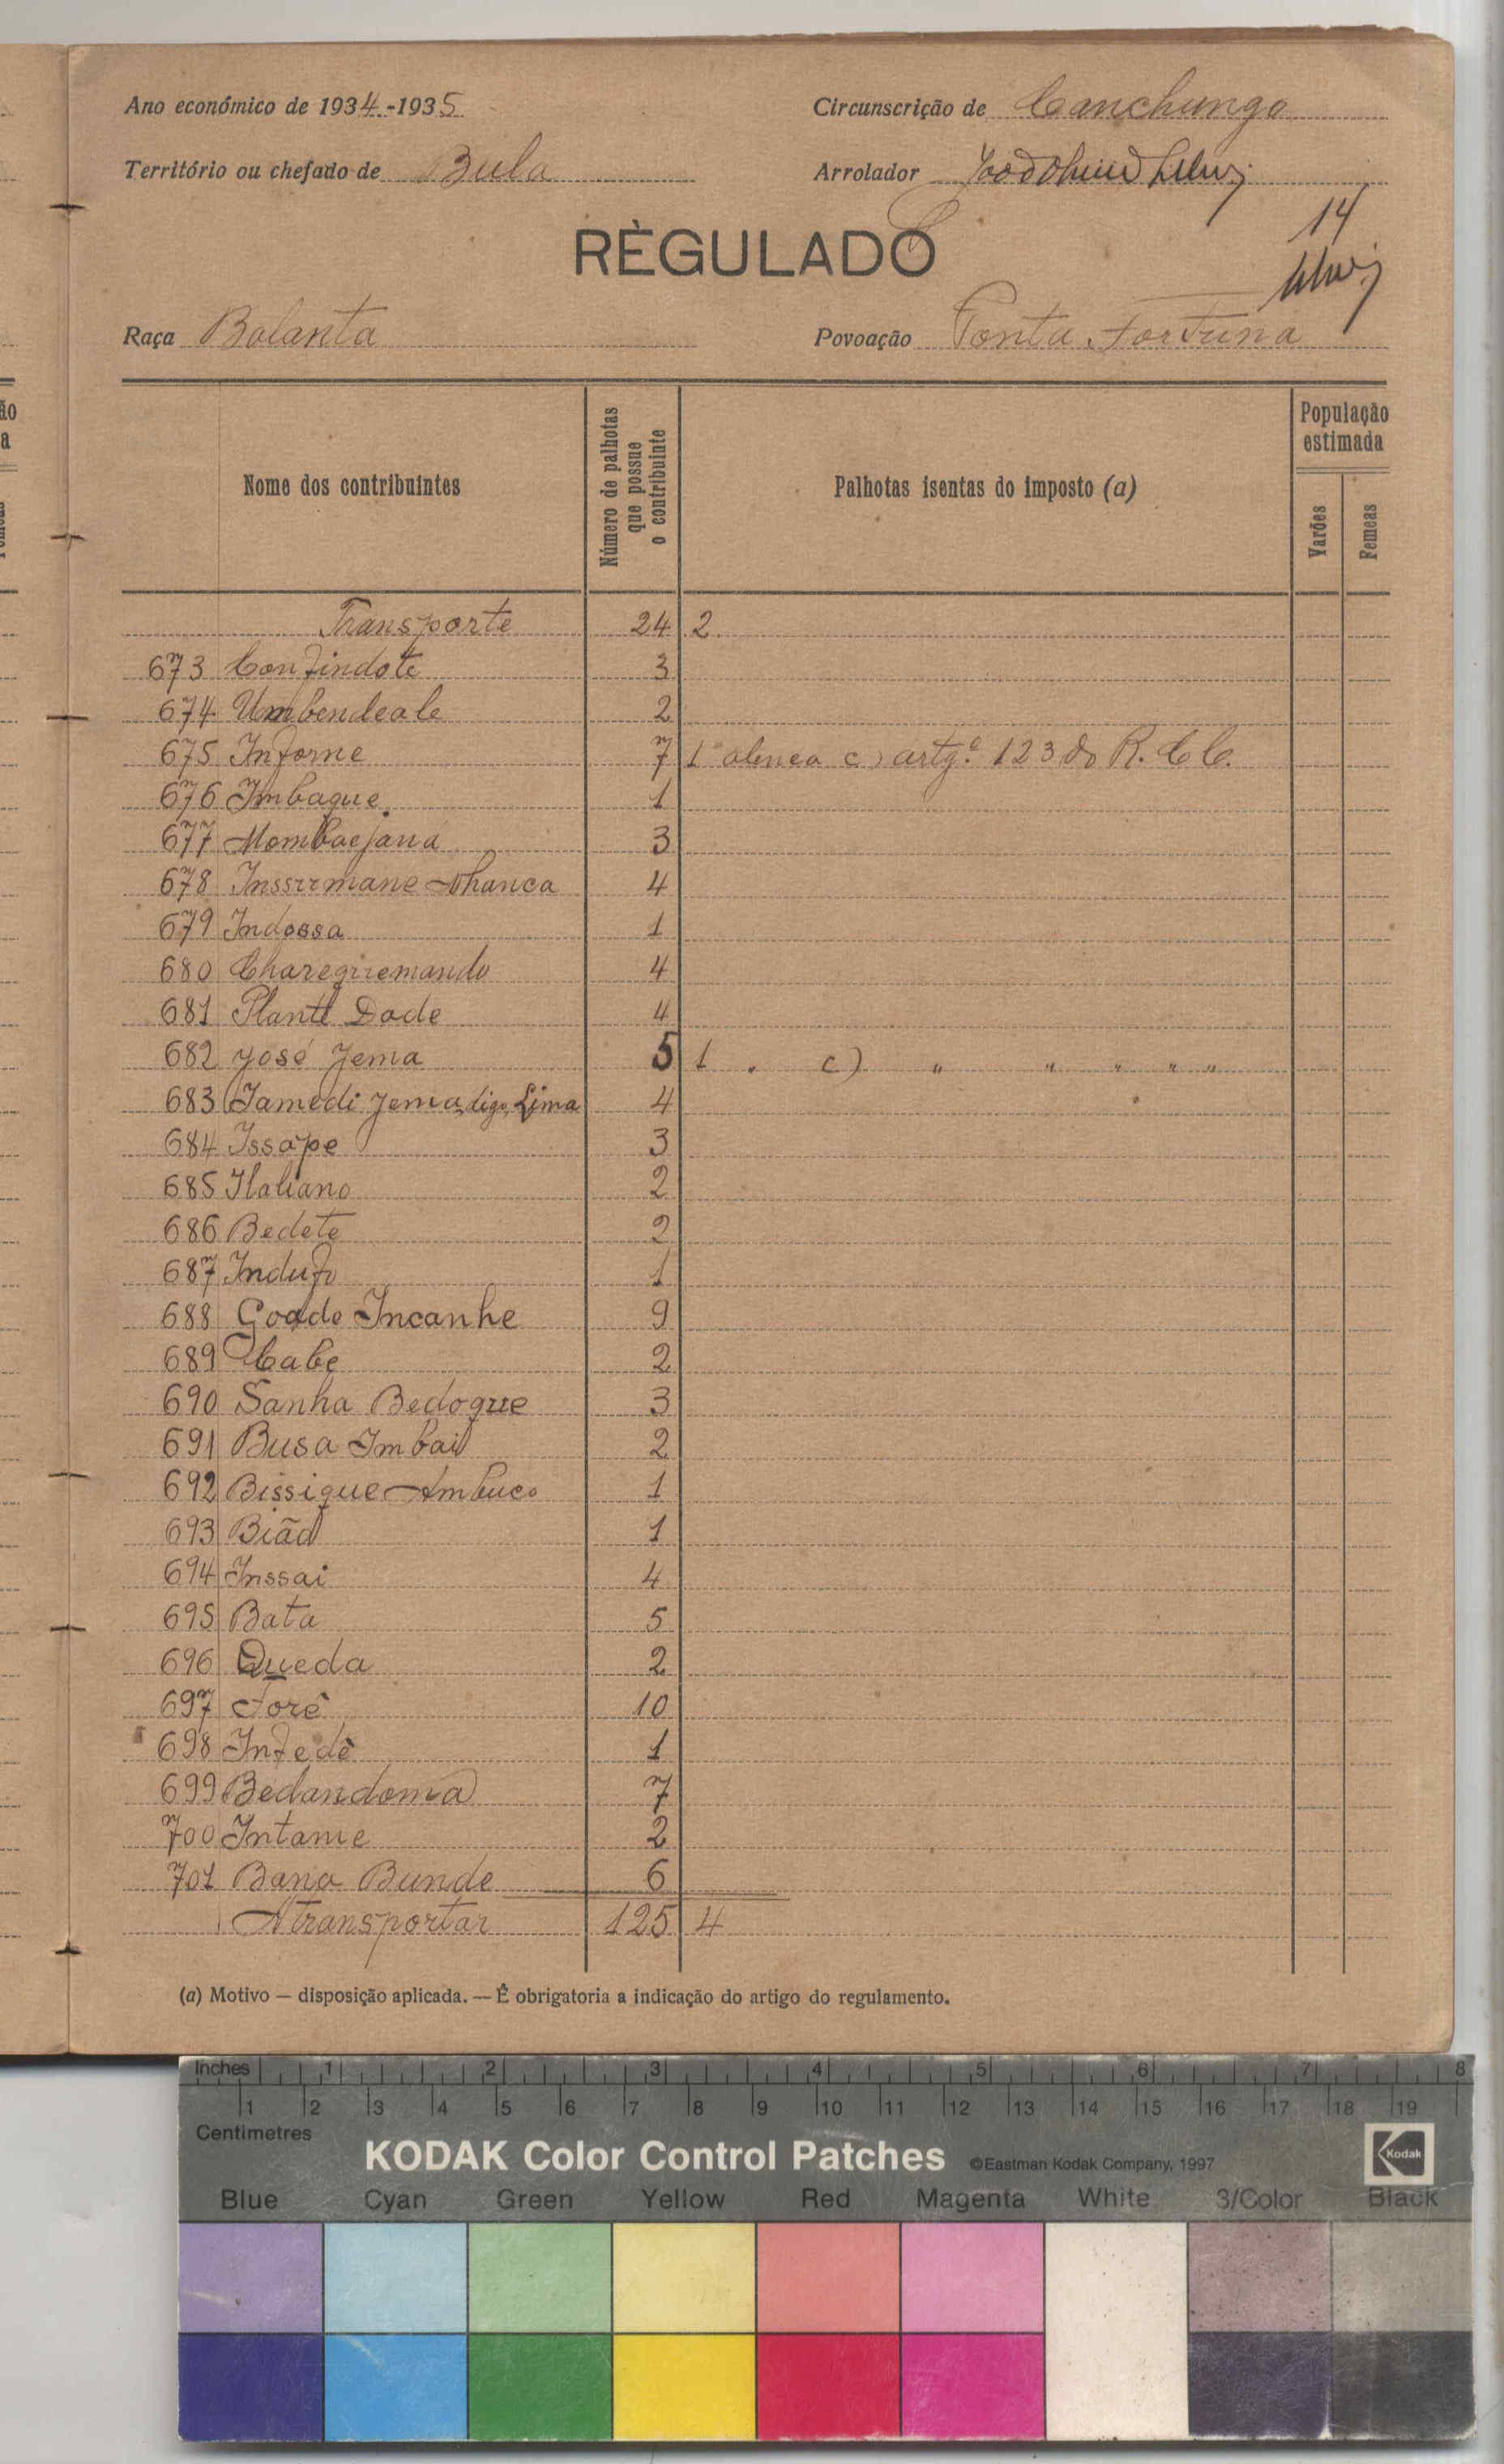 Ano económico de 1934-1935 Circunscrição de Canchungo
Território ou chefado de Bula Arrolador
14
RÈGULADO
Raça Balanta Povoação Ponta Fortuna
Nome dos contribuintes Número de palhotas que possue o contribuinte Palhotas isentas do imposto (a) População estimada Varões Femeas
Transporte 24 2
673 3
674 Umbendeale 2
675 7 1 alinea c) artg.º 123 do R. C C.
676 Imbaque 1
677 3
678 4
679 Indossa 1
680 4
681 Dade 4
682 José Jema 5 1 " c) " " " " "
683 Jamedi Jema, digo, Lima 4
684 Issápe 3
685 Italiano 2
686 Bedete 2
687 1
688 Goade Incanhe 9
689 Cabe 2
690 Sanha Bedogue 3
691 Busa Imbail 2
692 Bissique Ambuco 1
693 1
694 Inssai 4
695 Bata 5
696 Queda 2
697 Forê 10
698 1
699 Bedandoma 7
700 Intame 2
701 Bana Bunde 6
A transportar 125 4
(a) Motivo — disposição aplicada. — É obrigatoria a indicação do artigo do regulamento.
Inches 1 2 3 4 5 6 7 8
1 2 3 4 5 6 7 8 9 10 11 12 13 14 15 16 17 18 19
Centimetres
KODAK Color Control Patches ©Eastman Kodak Company, 1997 Kodak
Blue Cyan Green Yellow Red Magenta White 3/Color Black